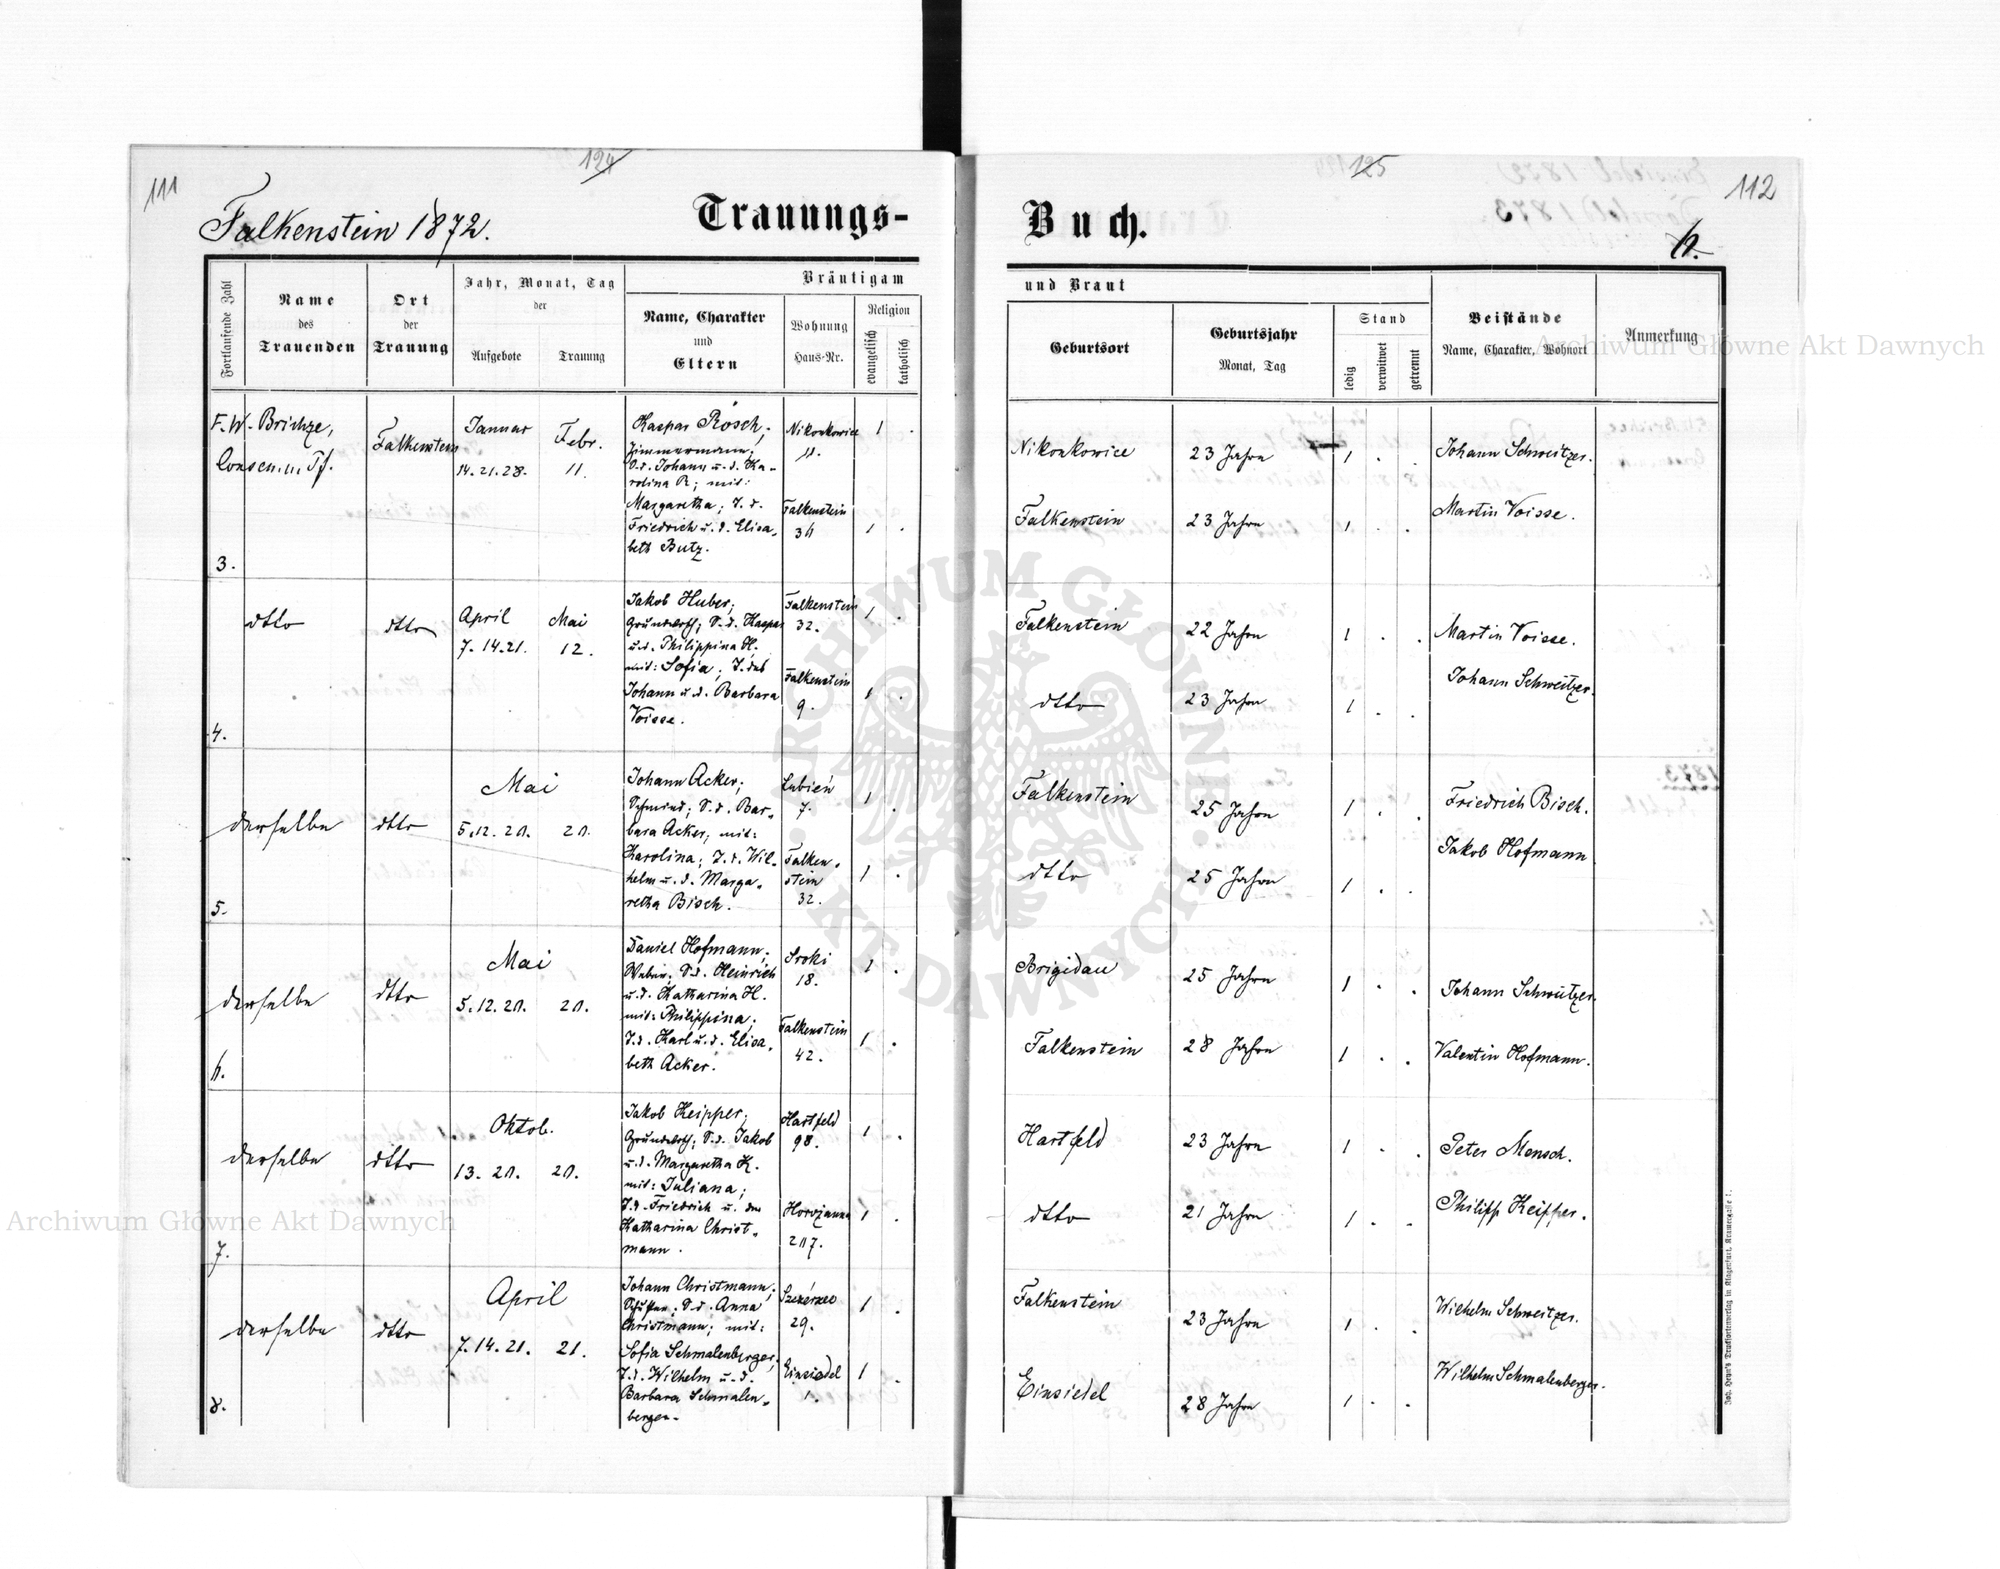 111
124
Falkenstein 1872.
Trauungs-
Fortlaufende Zahl
Name
des
Trauenden
Ort
der
Trauung
Jahr, Monat, Tag
der
Aufgebote
Trauung
Bräutigam
Name, Charakter
und
Eltern
Wohnung
Haus-Nr.
Religion
evangelisch
katholisch
125
112
Buch.
und Braut
Geburtsort
Geburtsjahr
Monat, Tag
Stand
ledig
verwitwet
getrennt
Beistände
Name, Charakter, Wohnort
Anmerkung
3.
F. W. Brichze,
Falkenstein
Januar
14. 21. 28.
Febr.
11.
Kaspar Rösch,
Zimmermann;
S. d. Johann u. d. Ka-
rolina R; mit:
Margaretha; T. d.
Friedrich u. d. Elisa-
beth Butz.
Nikonkowice
11.
Falkenstein
1 .
1 .
Nikonkowice
23 Jahre
1 . .
Johann Schweitzer.
Falkenstein
23 Jahre
1 . .
Martin Voisse.
4.
dtto
dtto
April
7. 14. 21.
Mai
12.
Jakob Huber;
Grundwirth; S. d. Kaspar
u. d. Philippina H.
mit: Sofia; T. des
Johann u. d. Barbara
Voisse.
Falkenstein
32.
Falkenstein
9.
1 .
1 .
Falkenstein
22 Jahre
1 . .
Martin Voisse.
dtto
23 Jahre
1 . .
Johann Schweitzer.
5.
derselbe
dtto
Mai
5. 12. 20.
20.
Johann Acker;
Schmied; S. d. Bar-
bara Acker; mit:
Karolina; T. d. Wil-
helm u. d. Marga-
retha Bisch.
Lubień
7.
Falken-
stein
32.
1 .
1 .
Falkenstein
25 Jahre
1 . .
Friedrich Bisch.
dtto
25 Jahre
1 . .
Jakob Hofmann
6.
derselbe
dtto
Mai
5. 12. 20.
20.
Daniel Hofmann;
Weber; S. d. Heinrich
u. d. Katharina H.
mit: Philippina;
T. d. Karl u. d. Elisa-
beth Acker.
Sroki
18.
Falkenstein
42.
1 .
1 .
Brigidau
25 Jahre
1 . .
Johann Schweitzer.
Falkenstein
28 Jahre
1 . .
Valentin Hofmann.
7.
derselbe
dtto
Oktob.
13. 20.
20.
Jakob Keipper;
Grundwirth; S. d. Jakob
u. d. Margaretha K.
mit: Juliana;
T. d. Friedrich u. der
Katharina Christ-
mann.
Hartfeld
98.
Horozanna
207.
1 .
1 .
Hartfeld
23 Jahre
1 . .
Peter Mensch.
dtto
21 Jahre
1 . .
Philipp Keipper.
8.
derselbe
dtto
April
7. 14. 21.
21.
Johann Christmann;
S. d. Anna
Christmann; mit:
Sofia Schmalenberger;
T. d. Wilhelm u. d.
Barbara Schmalen-
berger.
29.
Einsiedel
1.
1 .
1 .
Falkenstein
23 Jahre
1 . .
Wilhelm Schweitzer.
Einsiedel
28 Jahre
1 . .
Wilhelm Schmalenberger.
Joh. Heyn's Drucksortenverlag in Klagenfurt, Kramergasse
Archiwum Główne Akt Dawnych
Archiwum Główne Akt Dawnych
ARCHIWUM GŁÓWNE AKT DAWNYCH